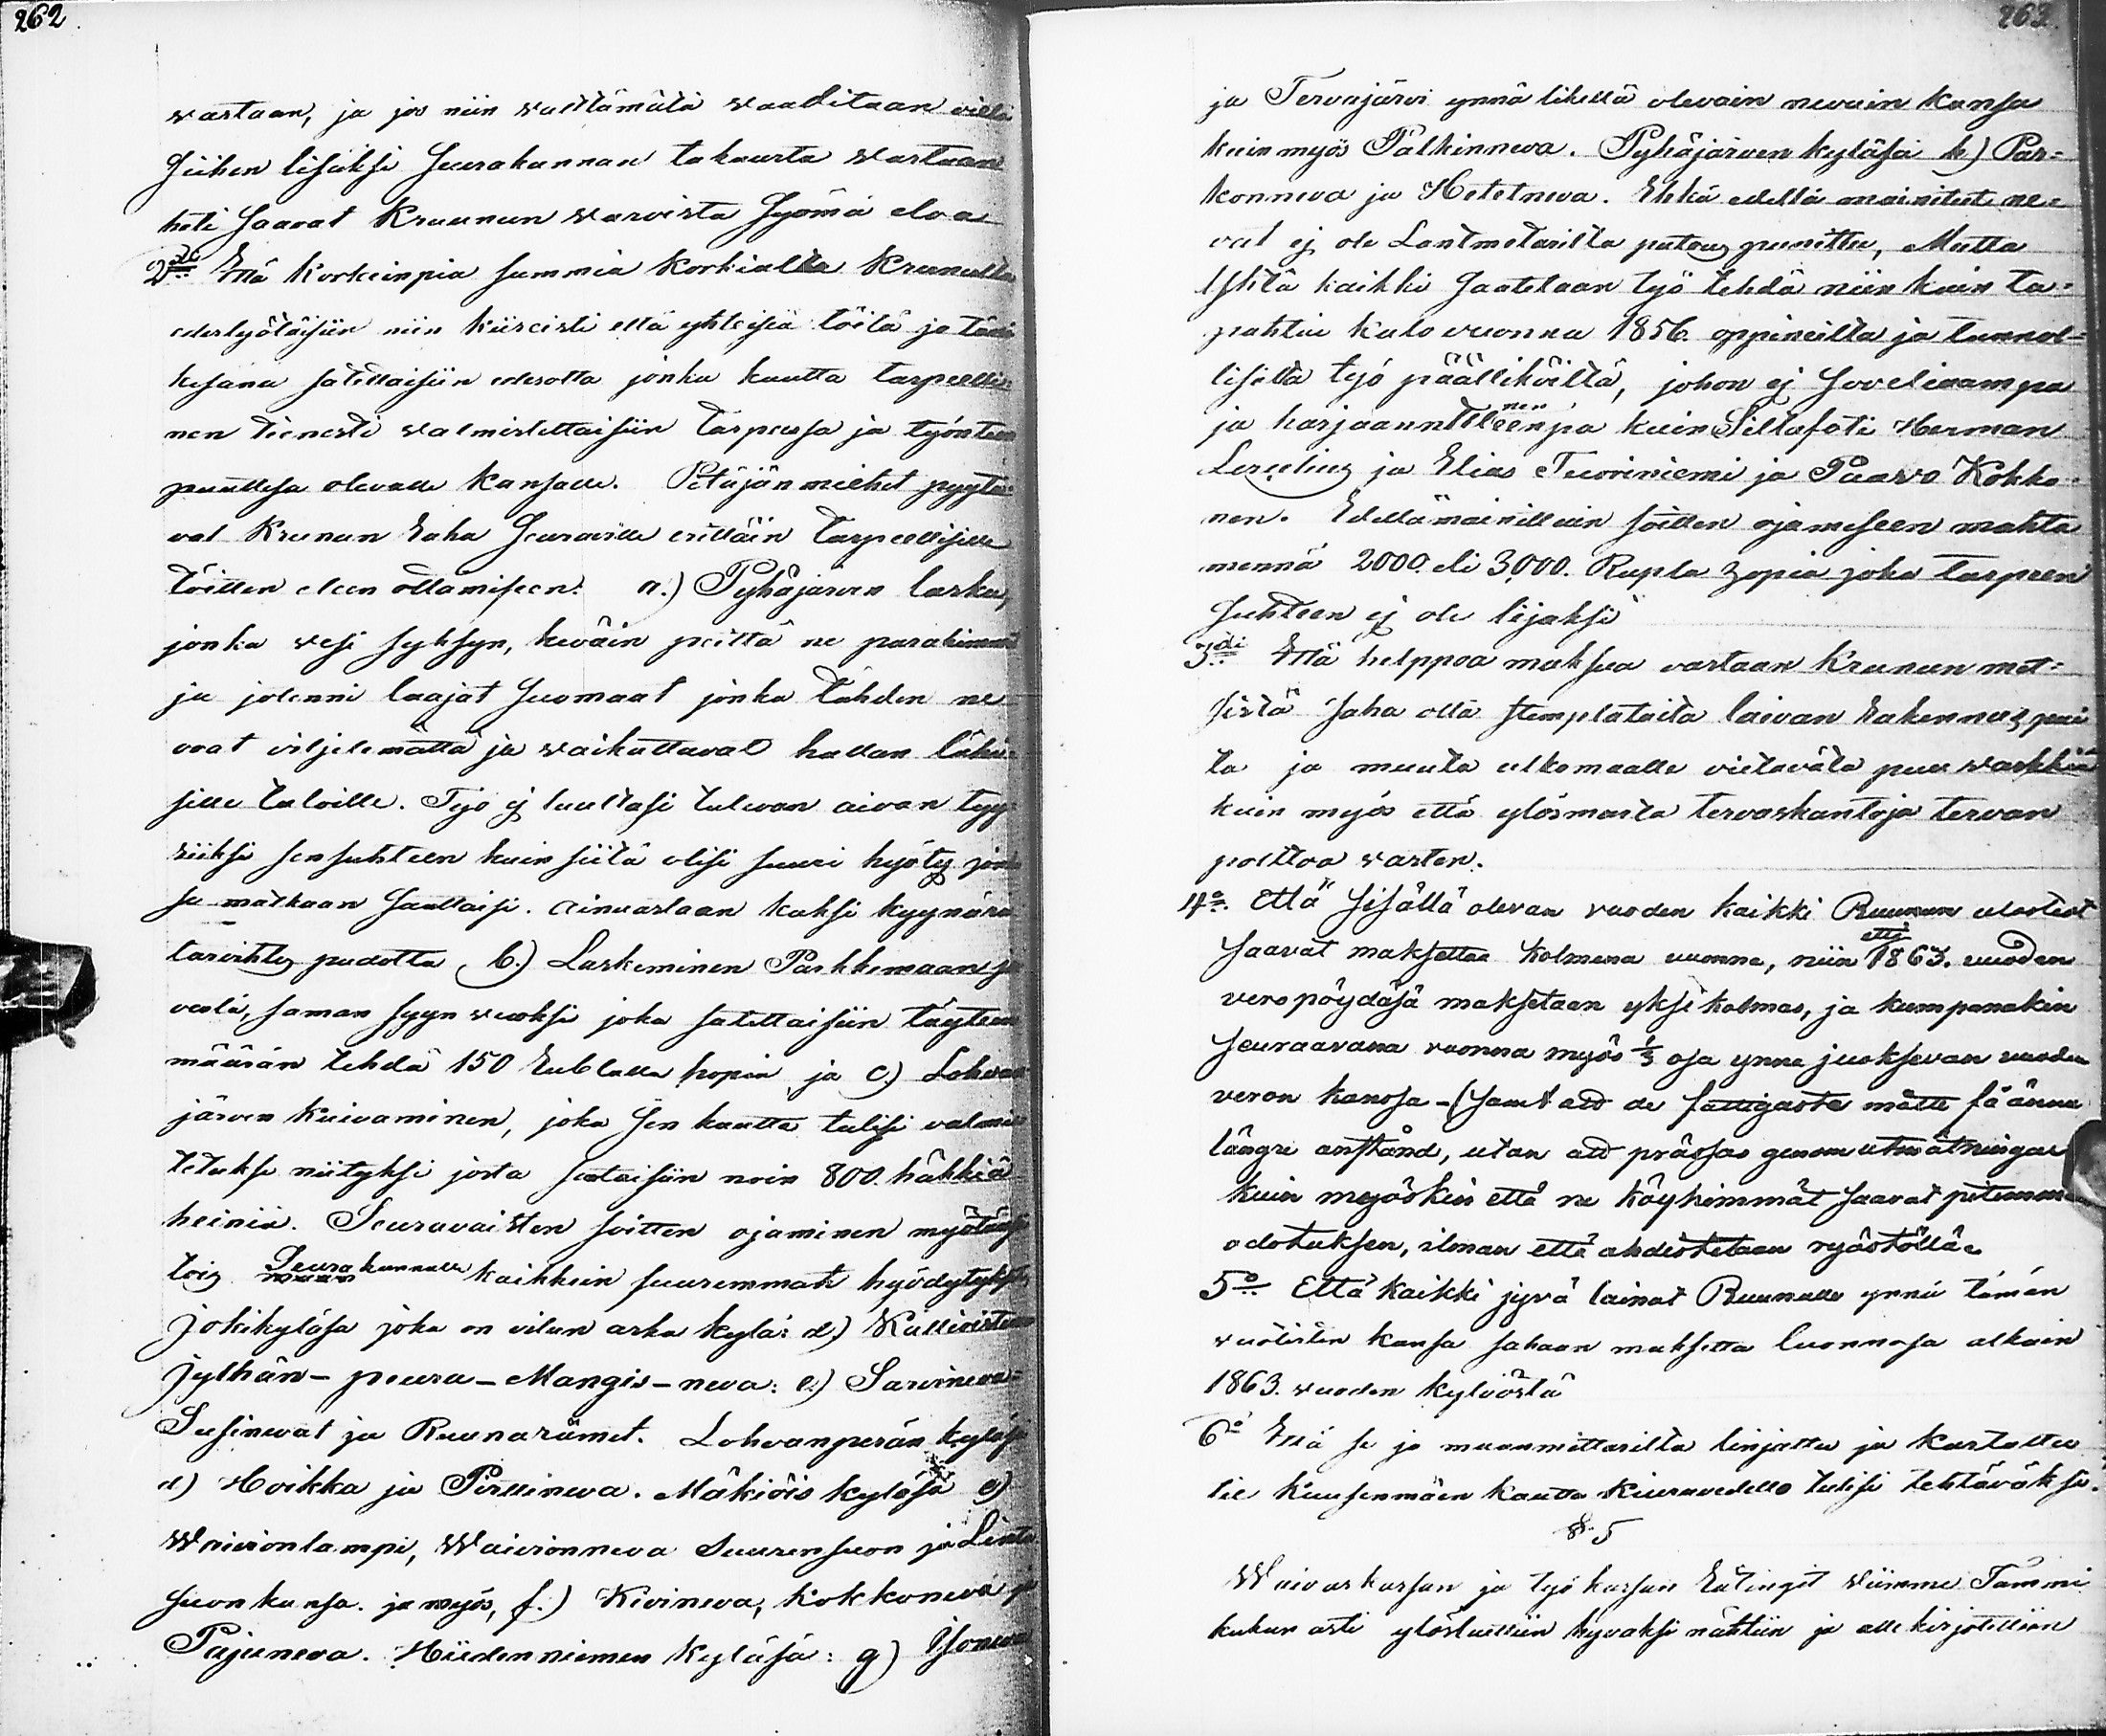 262
wastaan, ja jos niin wälttämätä waaditaan wielä
siihen lisäksi seurakunnan takausta wastaan
heti saavat Kruunun warvista syömä eloa
2do Että korkeinpia summia korkialta kruunulta
edestyötäisiin niin kiireisti että yhteisiä töitä ja tänä
kesänä sätettäisiin edesotta jonka kautta tarpeelli-
nen tienesti walmistettaisiin tarpeesa ja työn
puuttesa olevalle kansalle. Petäjänmiehet pyytä-
vät Krunun raha seuraville erittäin tarpeellisille
töitten eteen ottamiseen: a.) Pyhäjärven lasku,
jonka vesi syksyn, keväin peittä ne parahimmat
ja jotenni laajat suomaat jonka tähden ne
ovat viljelemättä ja waikuttavat hallan lähi-
sille taloille. Työ ej luultasi tulevan aivan tyy-
riiksi sen suhteen kuin siitä olisi suuri hyöty jonka
se matkaan saattaisi. ainoastaan kaksi kyynärä
tarvihtis pudotta b.) Laskeminen Parkkimaan ja
vestä, saman syyn vuoksi joka sätettäisiin täyteen
määrän tehdä 150 rublalla hopia ja c) Lohvan
järven kuivaminen, joka sen kautta tulisi valmis-
tetuksi niityksi josta saataisiin noin 800. häkkiä
heiniä. Seuravaisten soitten ojaminen myötäns
tois Seurakunnalle kaikkein suuremmati hyödytykse
Jokikyläsä joka on vilun arka kylä: d.) Kallioisten
Jylhän- peura- Mangis- neva: e) Sarvineva-
Susinevat ja Ruunarämet. Lohvanperän kyläsä
d) Hoikka ja Pirttineva. Mäkiöis kyläsä e)
Waivionlampi, Waivionneva Suurensuon ja Linta
suon kansa. ja myös, f.) Kivineva, kokkoneva ja
Pajuneva. Hiidenniemen kyläsä: g) Isoneva
263.
ja Tervajärvi ynnä likellä olevain nevain kansa
kuin myös Pälkinneva. Pyhäjärven kyläsä h) Par-
konneva ja Hetetneva. Ehkä edellä mainitut ne-
vat ej ole Lantmetarilta putous punittu, Mutta
Ishtä kaikki saatetaan työ tehdä niin kuin ta-
pahtui kato vuonna 1856. oppineilta ja tunnol-
lisilta työ päälliköiltä, johon ej soveliaampa
ja harjaanntuneenpa kuin Siltafoti Herman
Lerelius ja Elias Tuoriniemi ja Paavo Kokko-
nen. Edellämainittuin soitten ojamiseen mahta
mennä 2000. eli 3,000. Rupla hopia joka tarpeen
suhteen ej ole lijaksi
3di Että helppoa maksua vastaan Krunun met-
sistä saha otta stemplataita laivan rakennus pui
ta ja muuta ulkomaalle vietävätä puu warkkia
kuin myös että ylösmaita tervaskantoja tervan
polttoa varten.
4o. että sisällä olevan vuoden kaikki Ruunun ulosteot
saavat maksettaa kolmena vuonna, niin että 1863. vuoden
veropöydäsä maksetaan yksi kolmas, ja kumpanakin
seuraavana vuonna myös 1/3 osa ynna juoksevan vuoden
veron kanssa - (samt att de fattigaste måtte få ännu
längre anstånd, utan att prässas genom utmätningar
kuin myöskin että ne köyhimmät saavat pitemmä
odotuksen, ilman että ahdistetaan ryöstöllä.
5o Että kaikki jyvä lainat Ruunalle ynnä tämän
vuotisten kansa sahaan maksetta luonnosa alkain
1863. vuoden kylvöstä
6o Että se jo maanmittarilta linjattu ja kartattu
tie Kuusenmäen kautta Kiuruvedelle tulisi tehtäväksi.
§. 5
Waivaskassan ja työ kassan rätingit viimme Tammi
kukun asti ylösluettiin hyvaksi nähtiin ja alle kirjotettiin